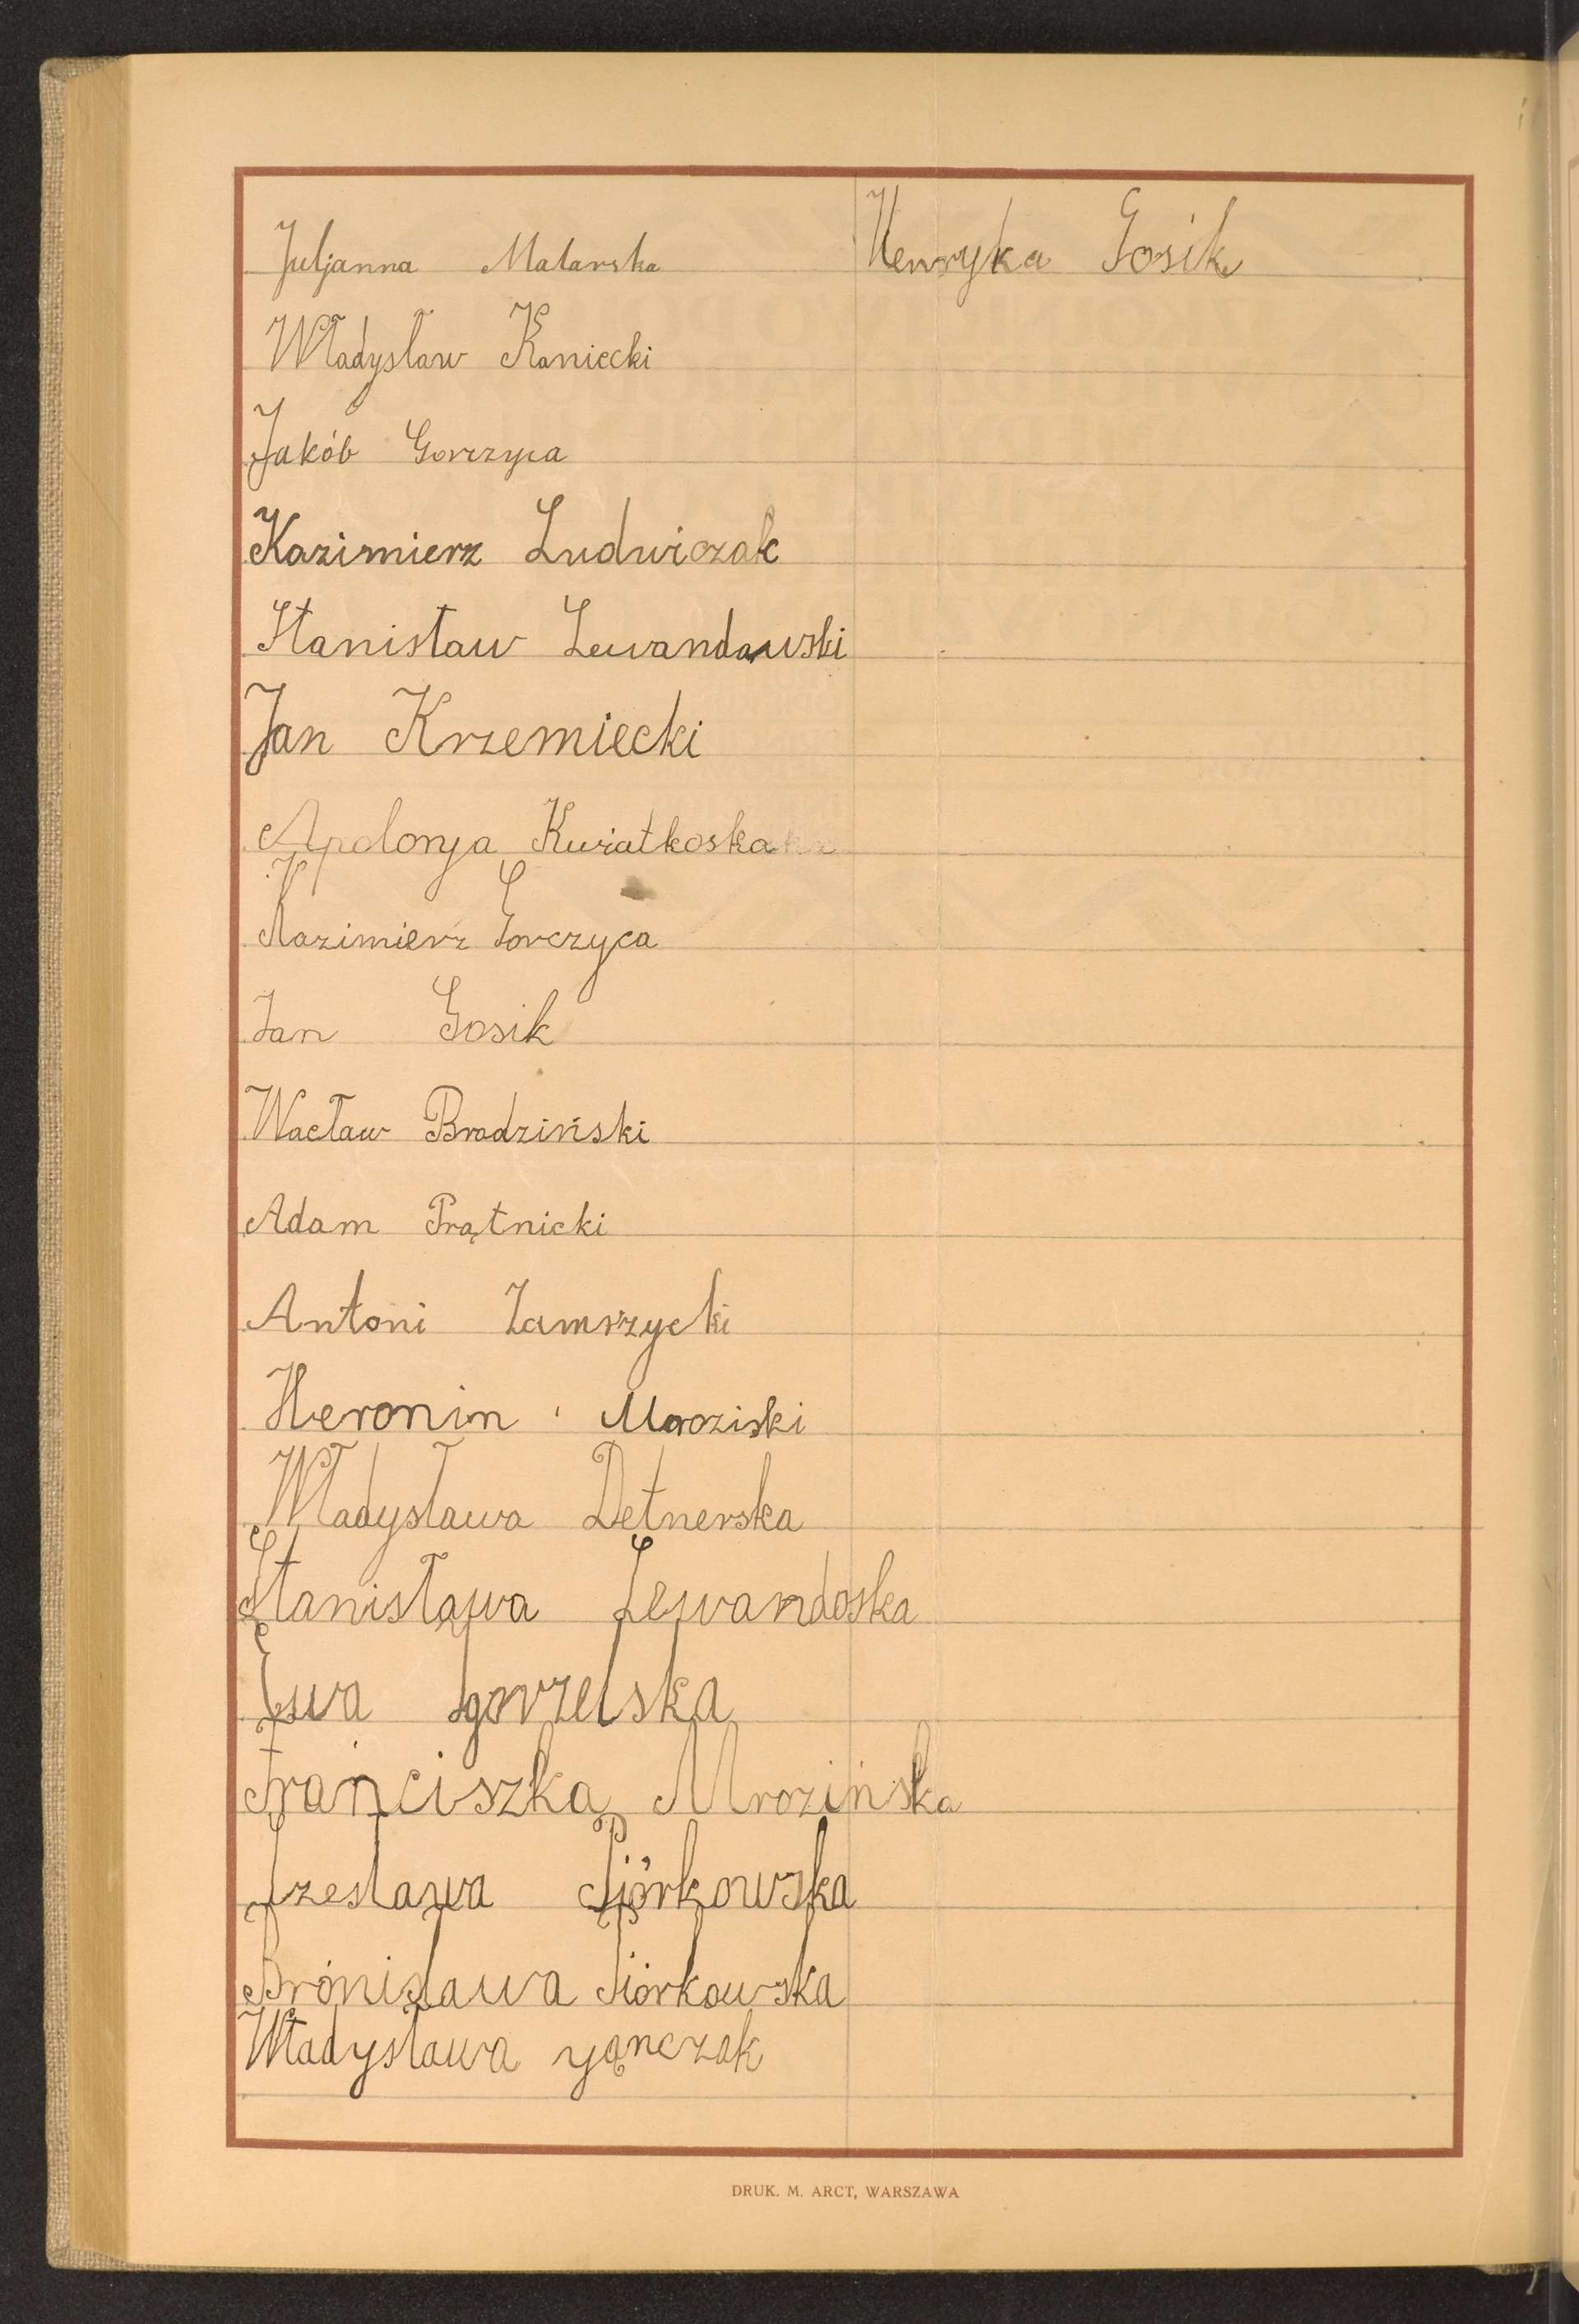 Juljanna Malarska
Władysław Kaniecki
Jakób Gorczyca
Kazimierz Ludwiczak
Stanisław Lewandowski
Jan Krzemiecki
Apolonja Kwiatkoska
Kazimierz Gorczyca
Jan Gosik
Wacław Brodziński
Adam Prątnicki
Antoni Zamrzycki
Heronin Mroziski
Władysława Detnerska
Stanisława Lewandoska
Ewa Zgorzelska
Franciszka Mrozińska
Czesława Piórkowska
Brónisława Piórkowska
Władysława yąnczak
Henryka Gosik
DRUK. M. ARCT, WARSZAWA